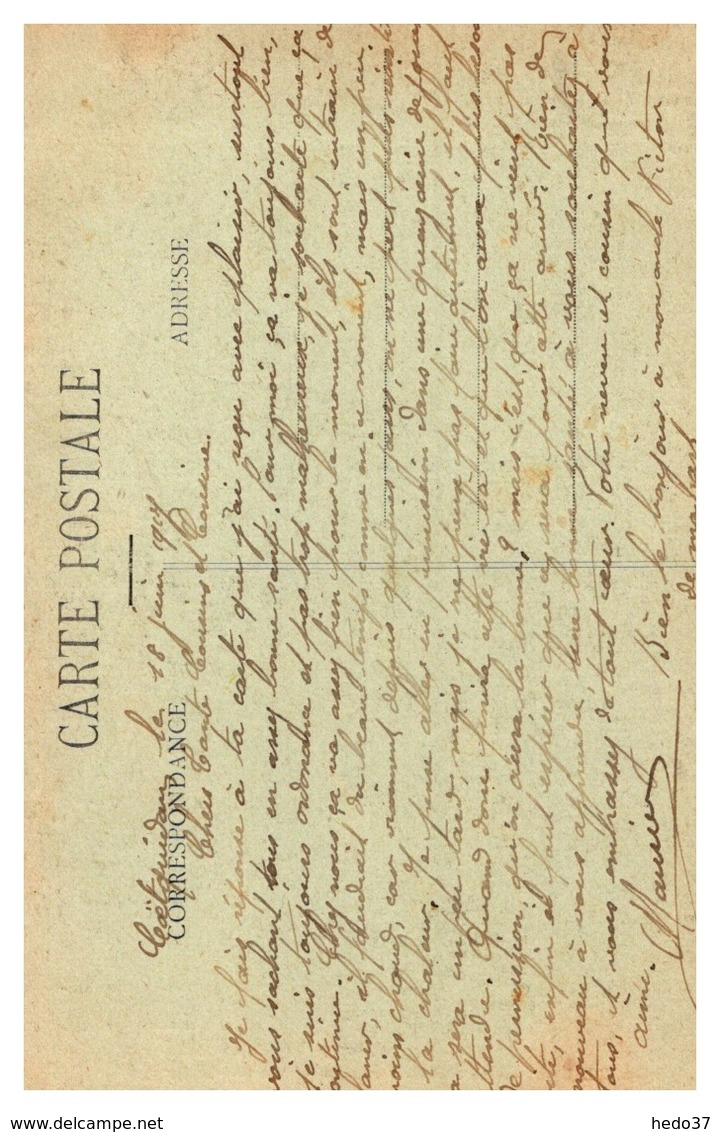 CARTE POSTALE
CORRESPONDANCE
ADRESSE
Coëtquidan le 18 juin 1915
Chers Tante Cousins et Cousine.
Je fais réponse à ta carte que j'ai reçu avec plaisir, surtout
vous sachant tous en assez bonne santé. Pour moi, ça va toujours bien,
je suis toujours ordonance et pas trop malheureux, je souhaite que ça
continue. Chez nous ça va assez bien pour le moment, ils sont entrain de
faner, il faudrait du beau temps comme en ce moment, mais un peu
moins chaud, car vraiment depuis quelques jours, on ne peut plus
la chaleur. Je pense aller en permission dans une quinzaine de jours
ça sera un peu tard, mais je ne peux pas faire autrement, il faut
attendre. Quand donc finira cette vie là et que l'on aura plus besoin
de permission, qu'on aura la bonne? mais c'est que ça ne vient pas
vite, enfin il faut espérer que ça sera pour cette année. Rien de
nouveau à vous apprendre, une bonne santé à vous souhaiter à
tous, et vous embrassez de tout cœur. Votre neveu et cousin que vous
aime.
Maurice
Bien le bonjour à mon oncle Victor
de ma part